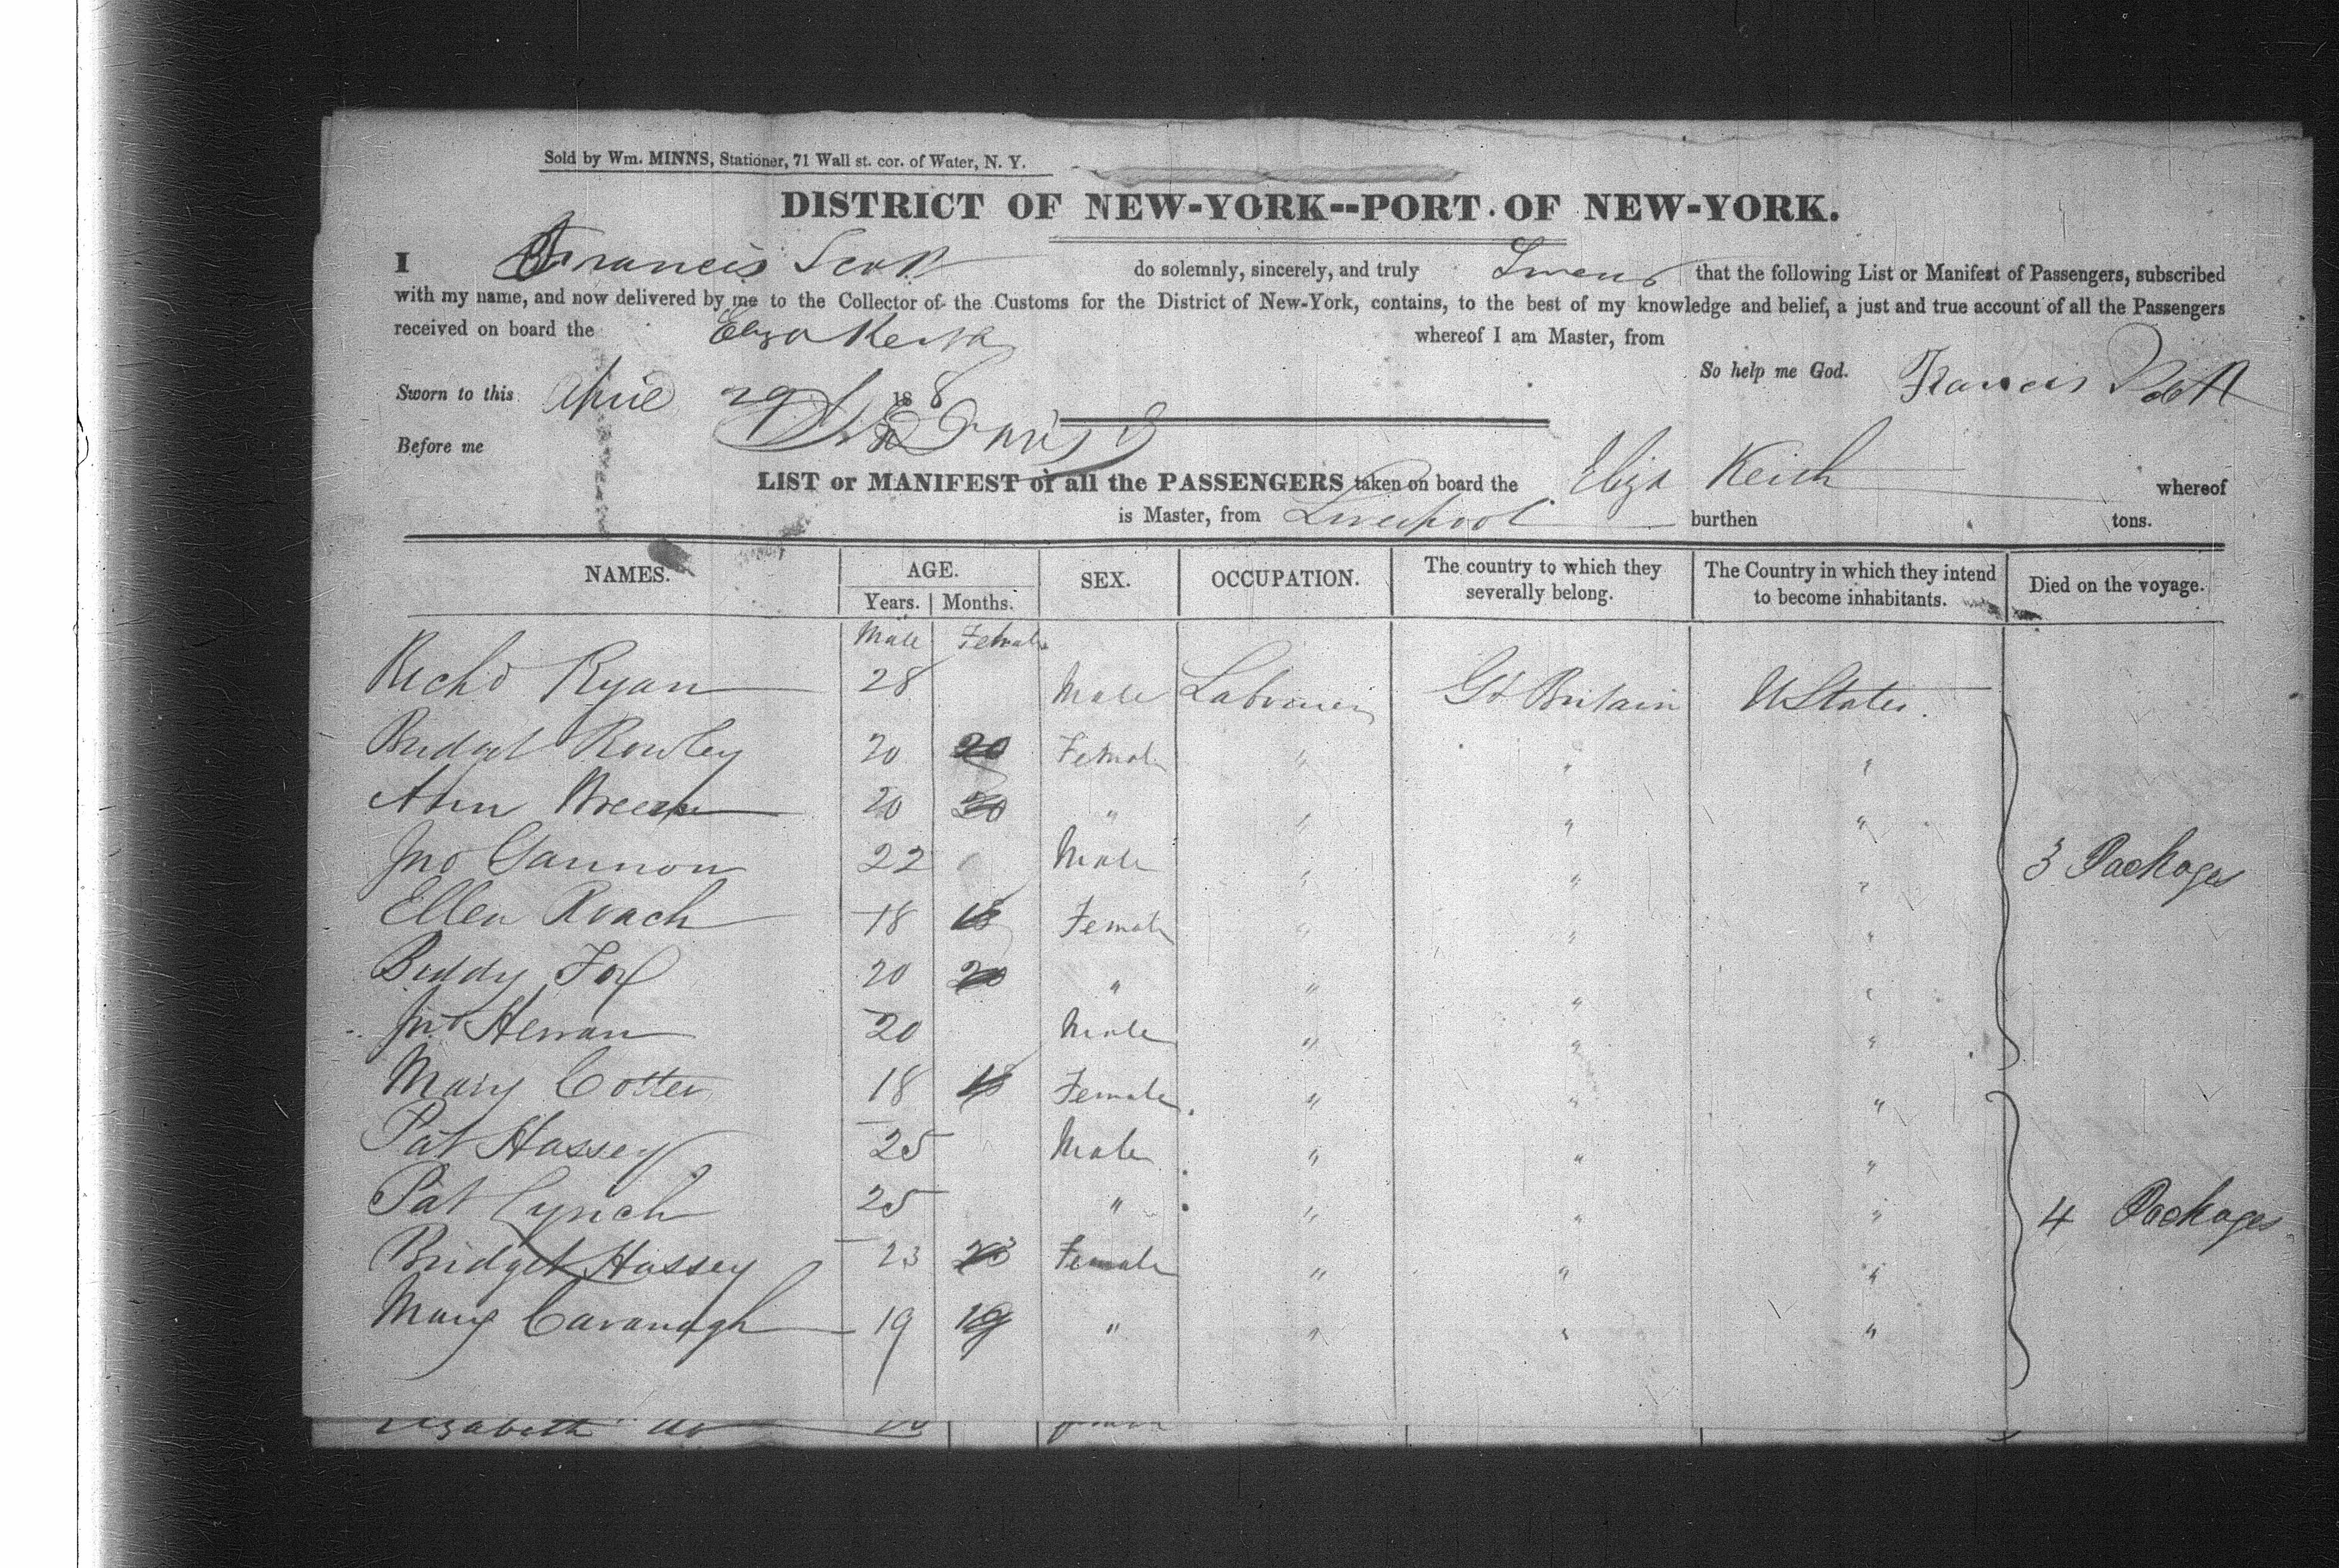 Sold by Wm. MINNS, Stationer, 71 Wall st. cor. of Water, N. Y.
DISTRICT OF NEW-YORK--PORT OF NEW-YORK.
I Francis Scott do solemnly, sincerely, and truly Swear that the following List or Manifest of Passengers, subscribed
with my name, and now delivered by me to the Collector of the Customs for the District of New-York, contains, to the best of my knowledge and belief, a just and true account of all the Passengers
received on board the Eliza Keith whereof I am Master, from
So help me God. Francis Scott
Sworn to this April 29 18 8
Before me
LIST or MANIFEST of all the PASSENGERS taken on board the Eliza Keith whereof
is Master, from Liverpool burthen tons.
NAMES. AGE. SEX. OCCUPATION. The country to which they severally belong. The Country in which they intend to become inhabitants. Died on the voyage.
Years. Months.
Male Female
Richd Ryan 28 Male Labourer Gt Britain U States.
Bridget Rowley 20 20 Female " " "
Ann 20 20 " " " "
Jno Gannon 22 Male " " "
3 Packages
Ellen Roach 18 18 Female " " "
Biddy Fox 20 20 " " " "
Jno Heman 20 Male " " "
Mary Cotter 18 18 Female " " "
Pat Hassey 25 Male " " "
Pat Lynch 25 " " " "
4 Packages
Bridget Hassey 23 23 Female " " "
Mary Cavanagh 19 19 " " " "
Elizabeth do